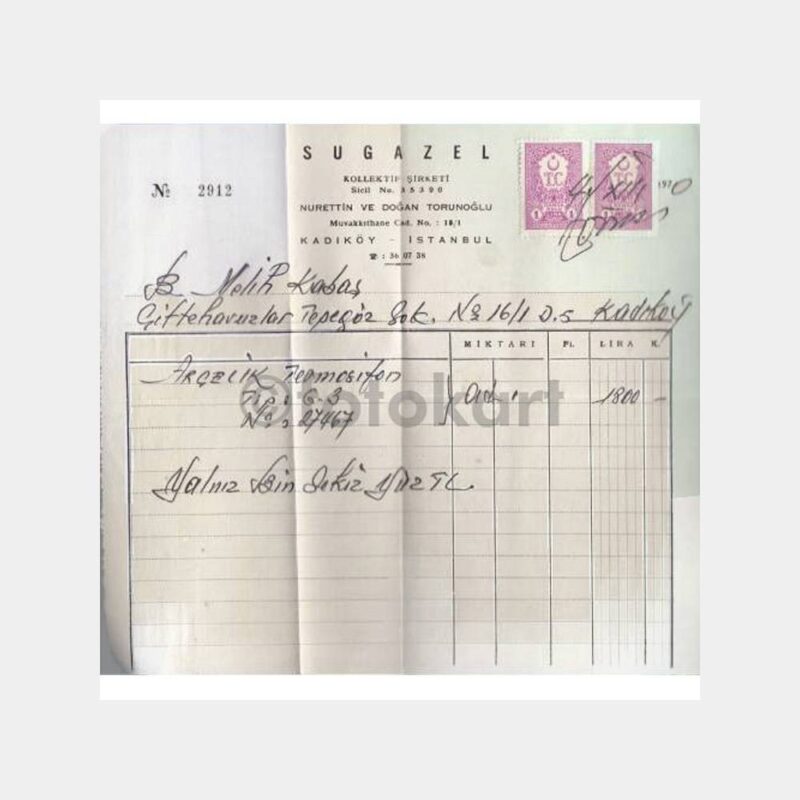 SUGAZEL
KOLLEKTİF ŞİRKETİ
№ 2912
Sicil No. 35390
NURETTİN VE DOĞAN TORUNOĞLU
Muvakkithane Cad. No. : 15/1
KADIKÖY - İSTANBUL
☎ : 36 07 38
T.C T.C
1 1 1
4/XII 1970
B. Melih Kabaş
Çiftehavuzlar Tepegöz Sok. № 16/1 D.5 Kadıköy
MİKTARI Fi. LİRA K.
ARÇELİK Termosifon
Tip: 6-3 1800 -
No: 27467
Yalnız Bin Sekiz Yüz TL.
fotokart